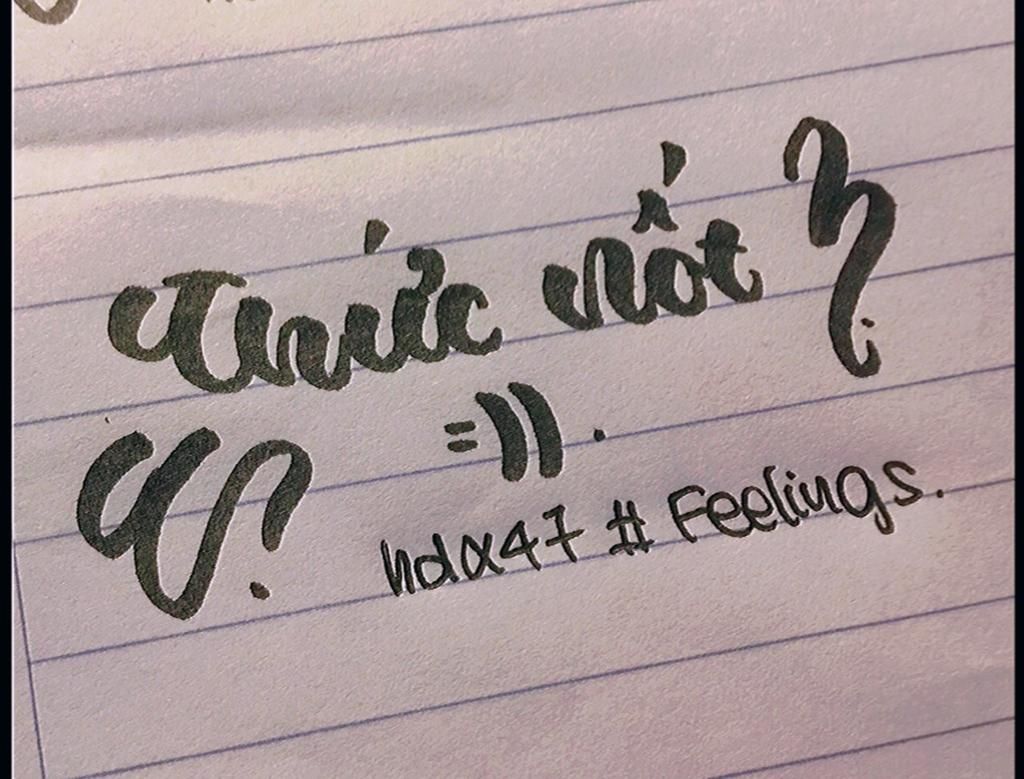 Thức nốt ?
=)) .
hdx47 # Feelings.